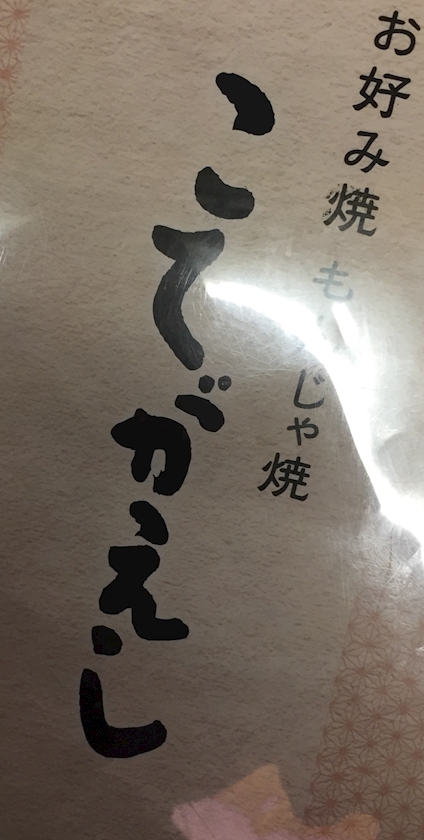 お好み焼 もんじゃ焼
こてがえし